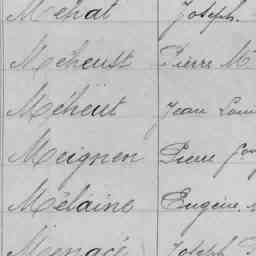 Mehat Joseph.
Meheust Pierre M
Méheut Jean Loui
Meignen Pierre
Mélaine Eugène
Menacé Joseph